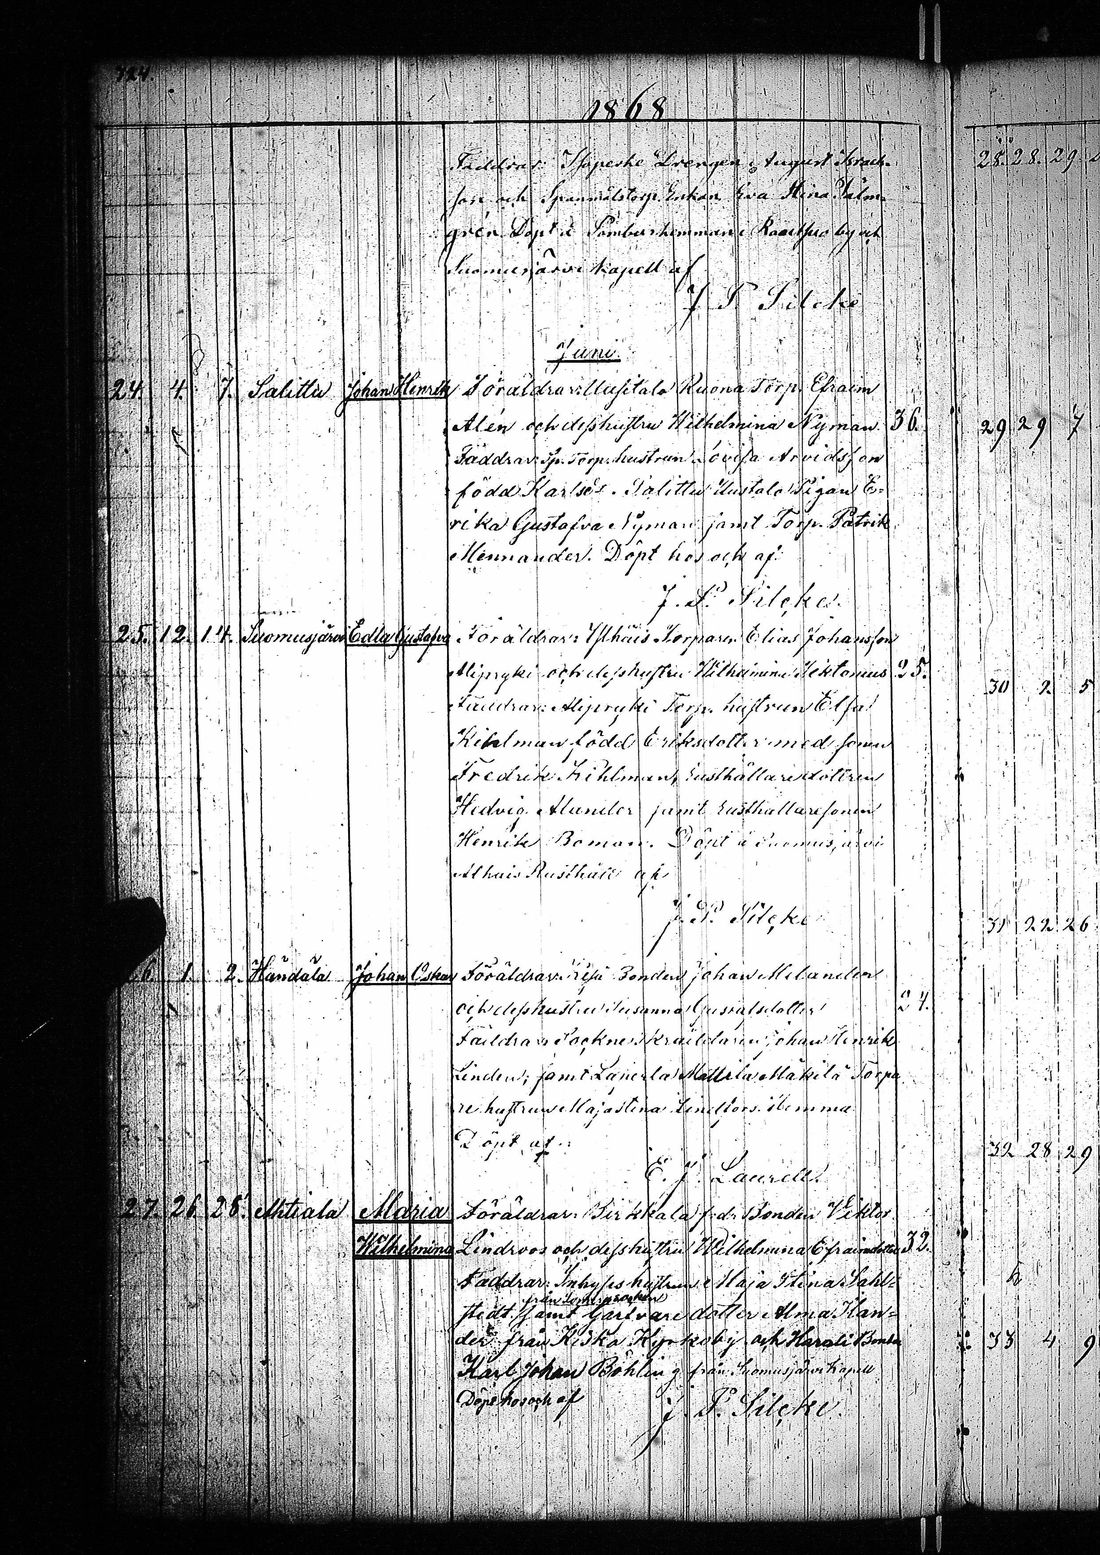 324.
1868
Faddrar: Drengen August Israels-
son och Spanmålstorp. Enkan Eva Stina Palm-
grén. Döpt å i by och
Suomusjärvi Kapell af
J. P. Silcke
Juni.
24. 4. 7. Salittu Johan Henrik Föräldrar: Uusitalo Ruona Torp. Efraim
Alén och dess hustru Wilhelmina Nyman. 36.
Faddrar: Sp. Torp. hustrun Lovisa Arvidsson
född Karlsé. Salittu Uustalo Pigan E-
rika Gustafva Nyman jämt Torp. Patrik
Mennander. Döpt hos och af
J. P. Silcke.
25. 12. 14. Suomusjärvi Edla Gustafva Föräldrar: Torparen Elias Johansson
och dess hustru Wilhelmina 25.
Faddrar: Torp. hustrun Elsa
Kihlman född Eriksdotter med sonen
Fredrik Kihlman, Rusthållaredottren
Hedvig Alander jämt Rusthållaresonen
Henrik Boman. Döpt å Suomusjärvi
Rusthåll af
J. P. Silcke
26. 1. 2. Håndåla Johan Oskar Föräldrar: Bonden Johan Melander
och dess hustru Susanna 27.
Faddrar: Sockneskräddaren Johan Henrik
Linden, jämt Mattila Mäkilä Torpa
re hustrun Majastina Lindfors. Hemma
Döpt af:
E. J. Laurell.
27. 26. 28. Ahtiala Maria Föräldrar: Pirkkala f.d. Bonden Viktor
Wilhelmina Lindroos och dess hustru Wilhelmina Efraimdotter 32.
Faddrar: Inhyses hustrun Maja Stina Sahl-
stedt jämt Garfvare dotter Alma Kan-
der från Kisko Kyrkoby och Bonden
Karl Johan Böhling från Suomusjärvi Kapell
Döpt hos och af J. P. Silcke.
28. 28. 29
29 29 7
30 2 5
31 22 26
32 28 29
33 4 9